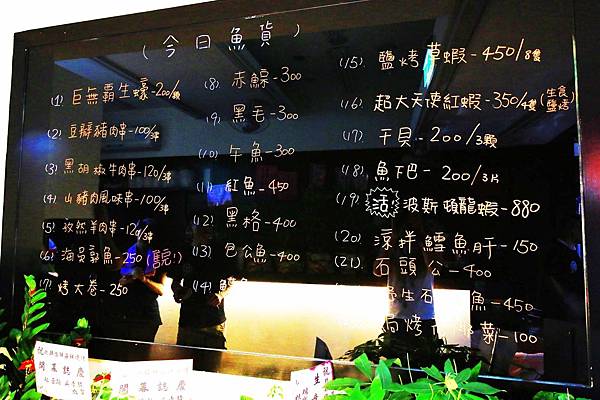 (今日魚貨)
(1) 巨無霸生蠔-200/顆
(2) 豆瓣豬肉串-100/3串
(3) 黑胡椒牛肉串-120/3串
(4) 山豬肉風味串-100/3串
(5) 孜然羊肉串-120/3串
(6) 海員郭魚-250(售完!)
(7) 烤大卷-250
(8) 赤鯮-300
(9) 黑毛-300
(10) 午魚-300
(11) 紅魚-450
(12) 黑格-400
(13) 包公魚-400
(14)
(15) 鹽烤草蝦-450/8隻
(16) 超大天使紅蝦-350/4隻(生食 鹽烤)
(17) 干貝-200/3顆
(18) 魚下巴-200/3片
(19) 活 波斯頓龍蝦-880
(20) 涼拌鱈魚肝-150
(21) 石頭公-400
生石 魚-450
烤 菜-100
開幕誌慶
開幕誌慶